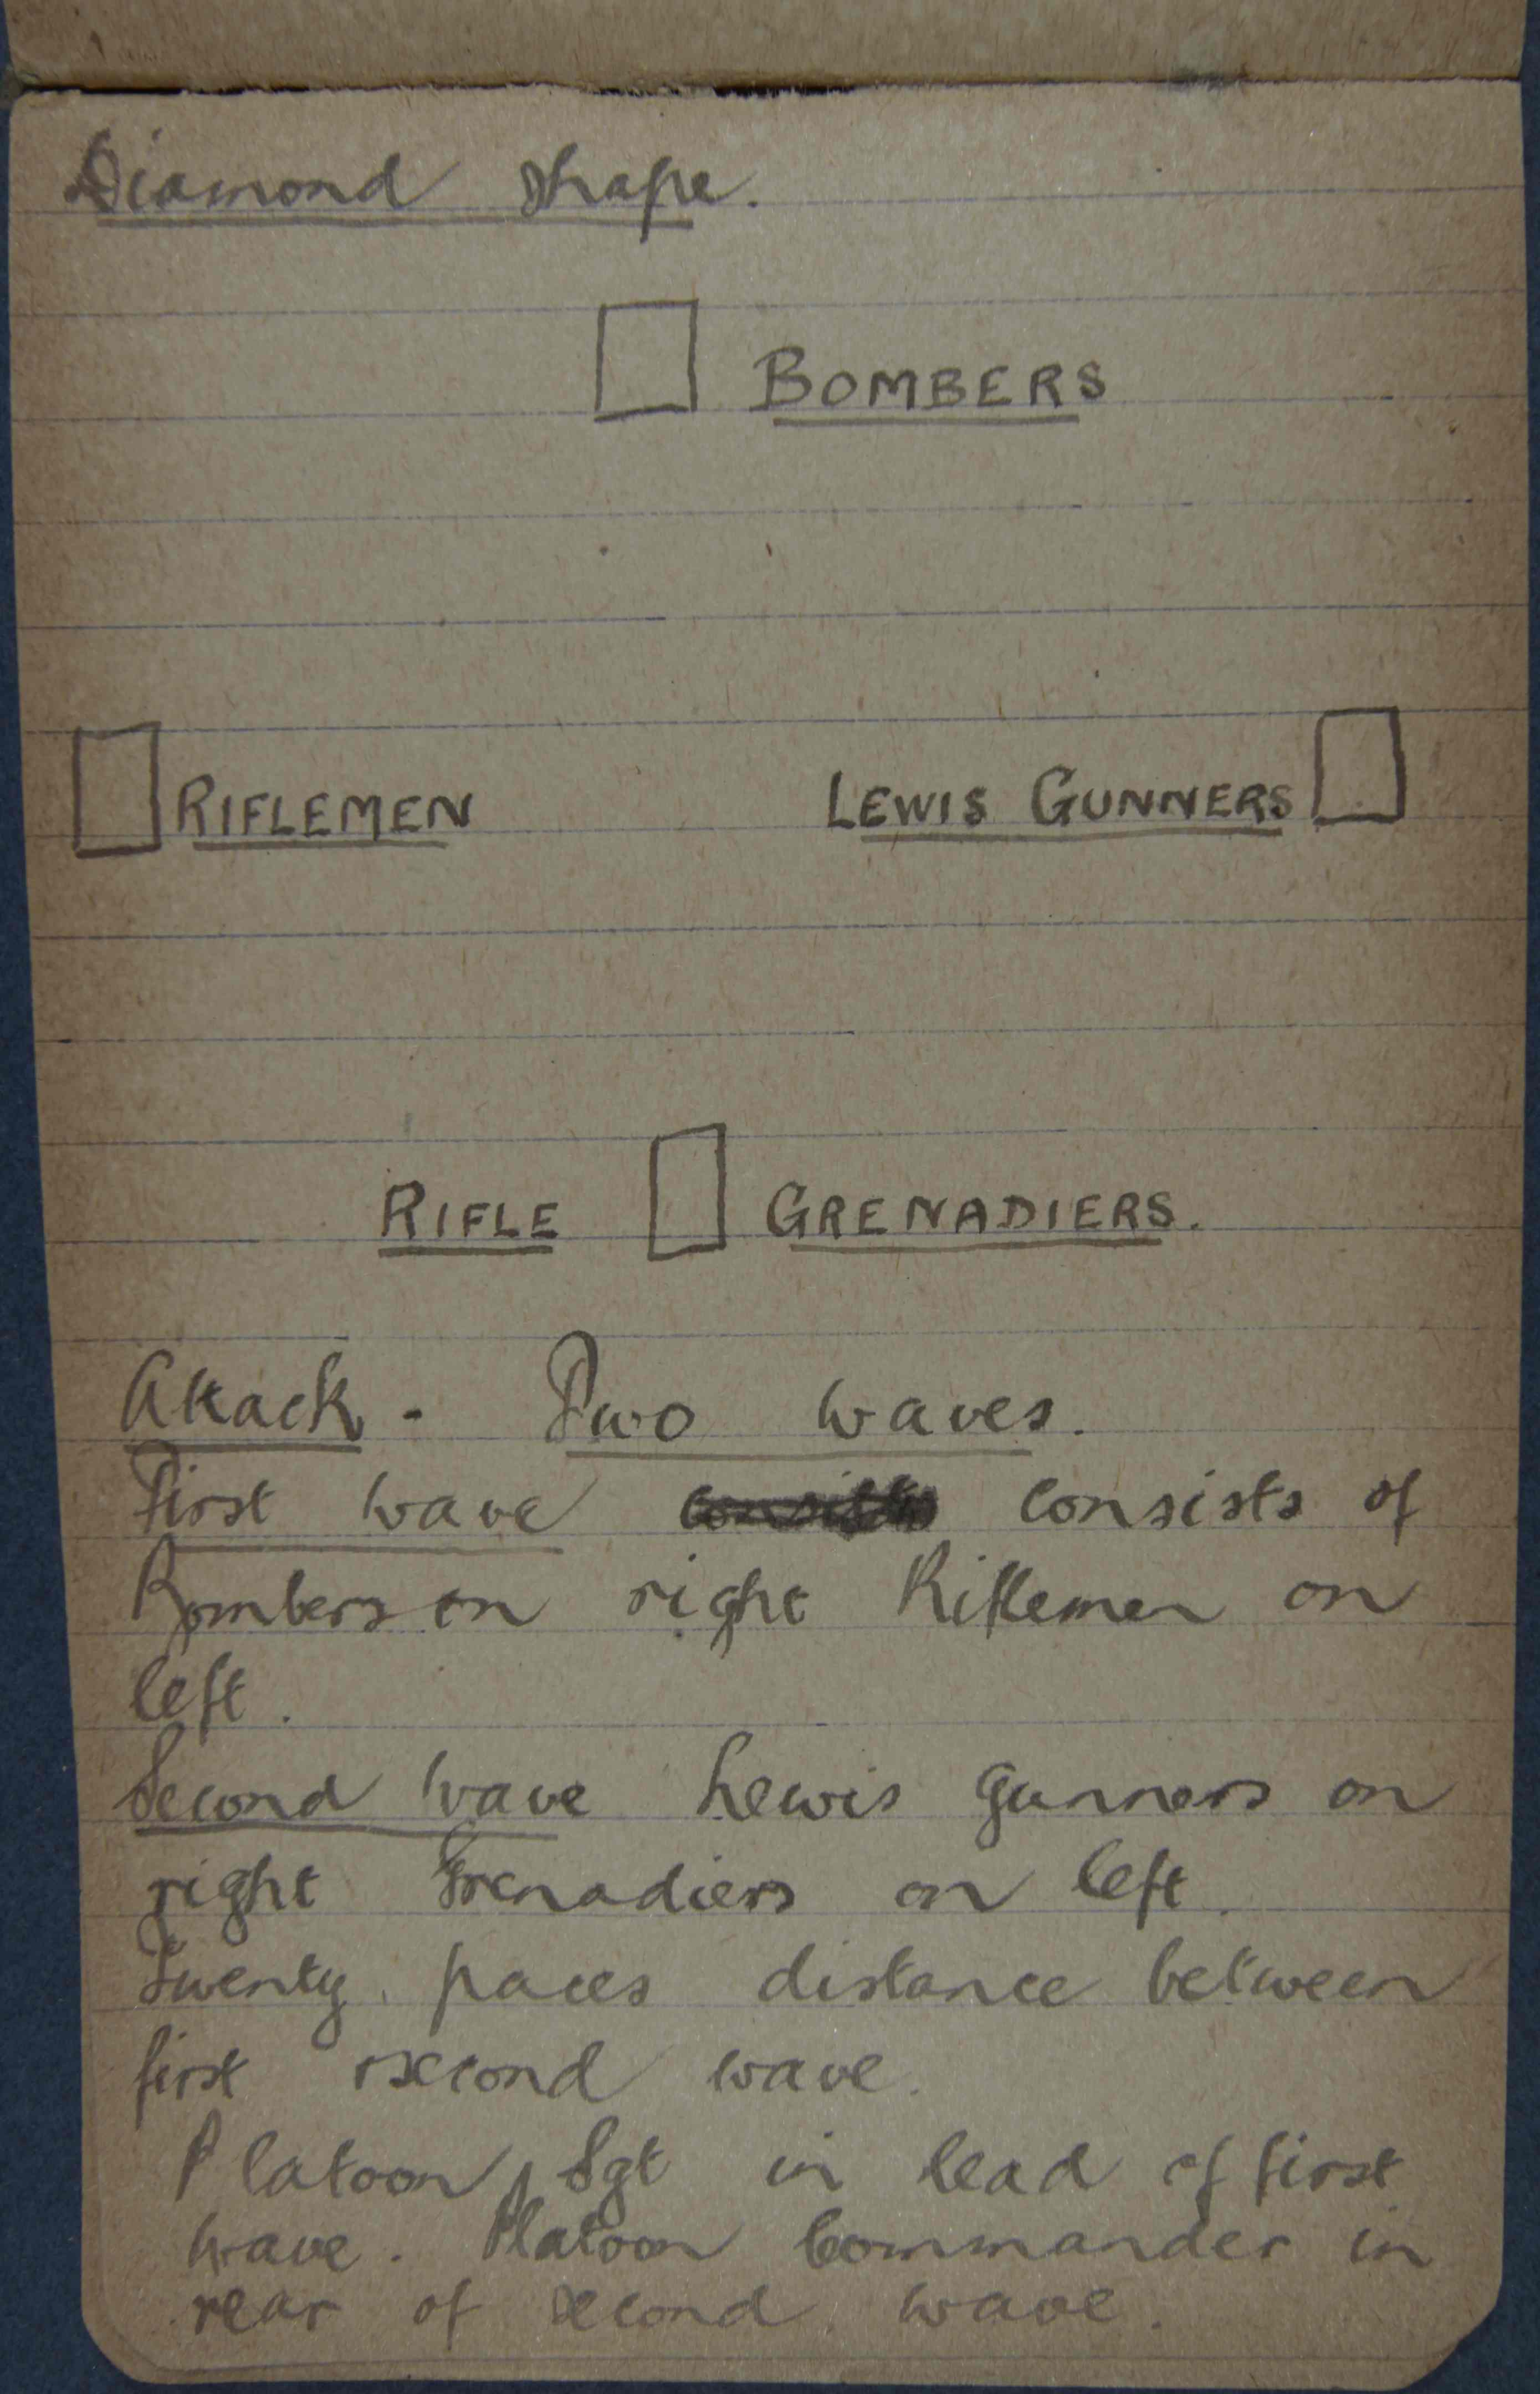 Diamond shape.
BOMBERS
RIFLEMEN LEWIS GUNNERS
RIFLE GRENADIERS.
Attack - Two waves.
First wave consists of
Bombers on right Riflemen on
left.
Second wave Lewis Gunners on
right Grenadiers on left.
Twenty paces distance between
first second wave.
Platoon Sgt in lead of first
wave. Platoon Commander in
rear of second wave.